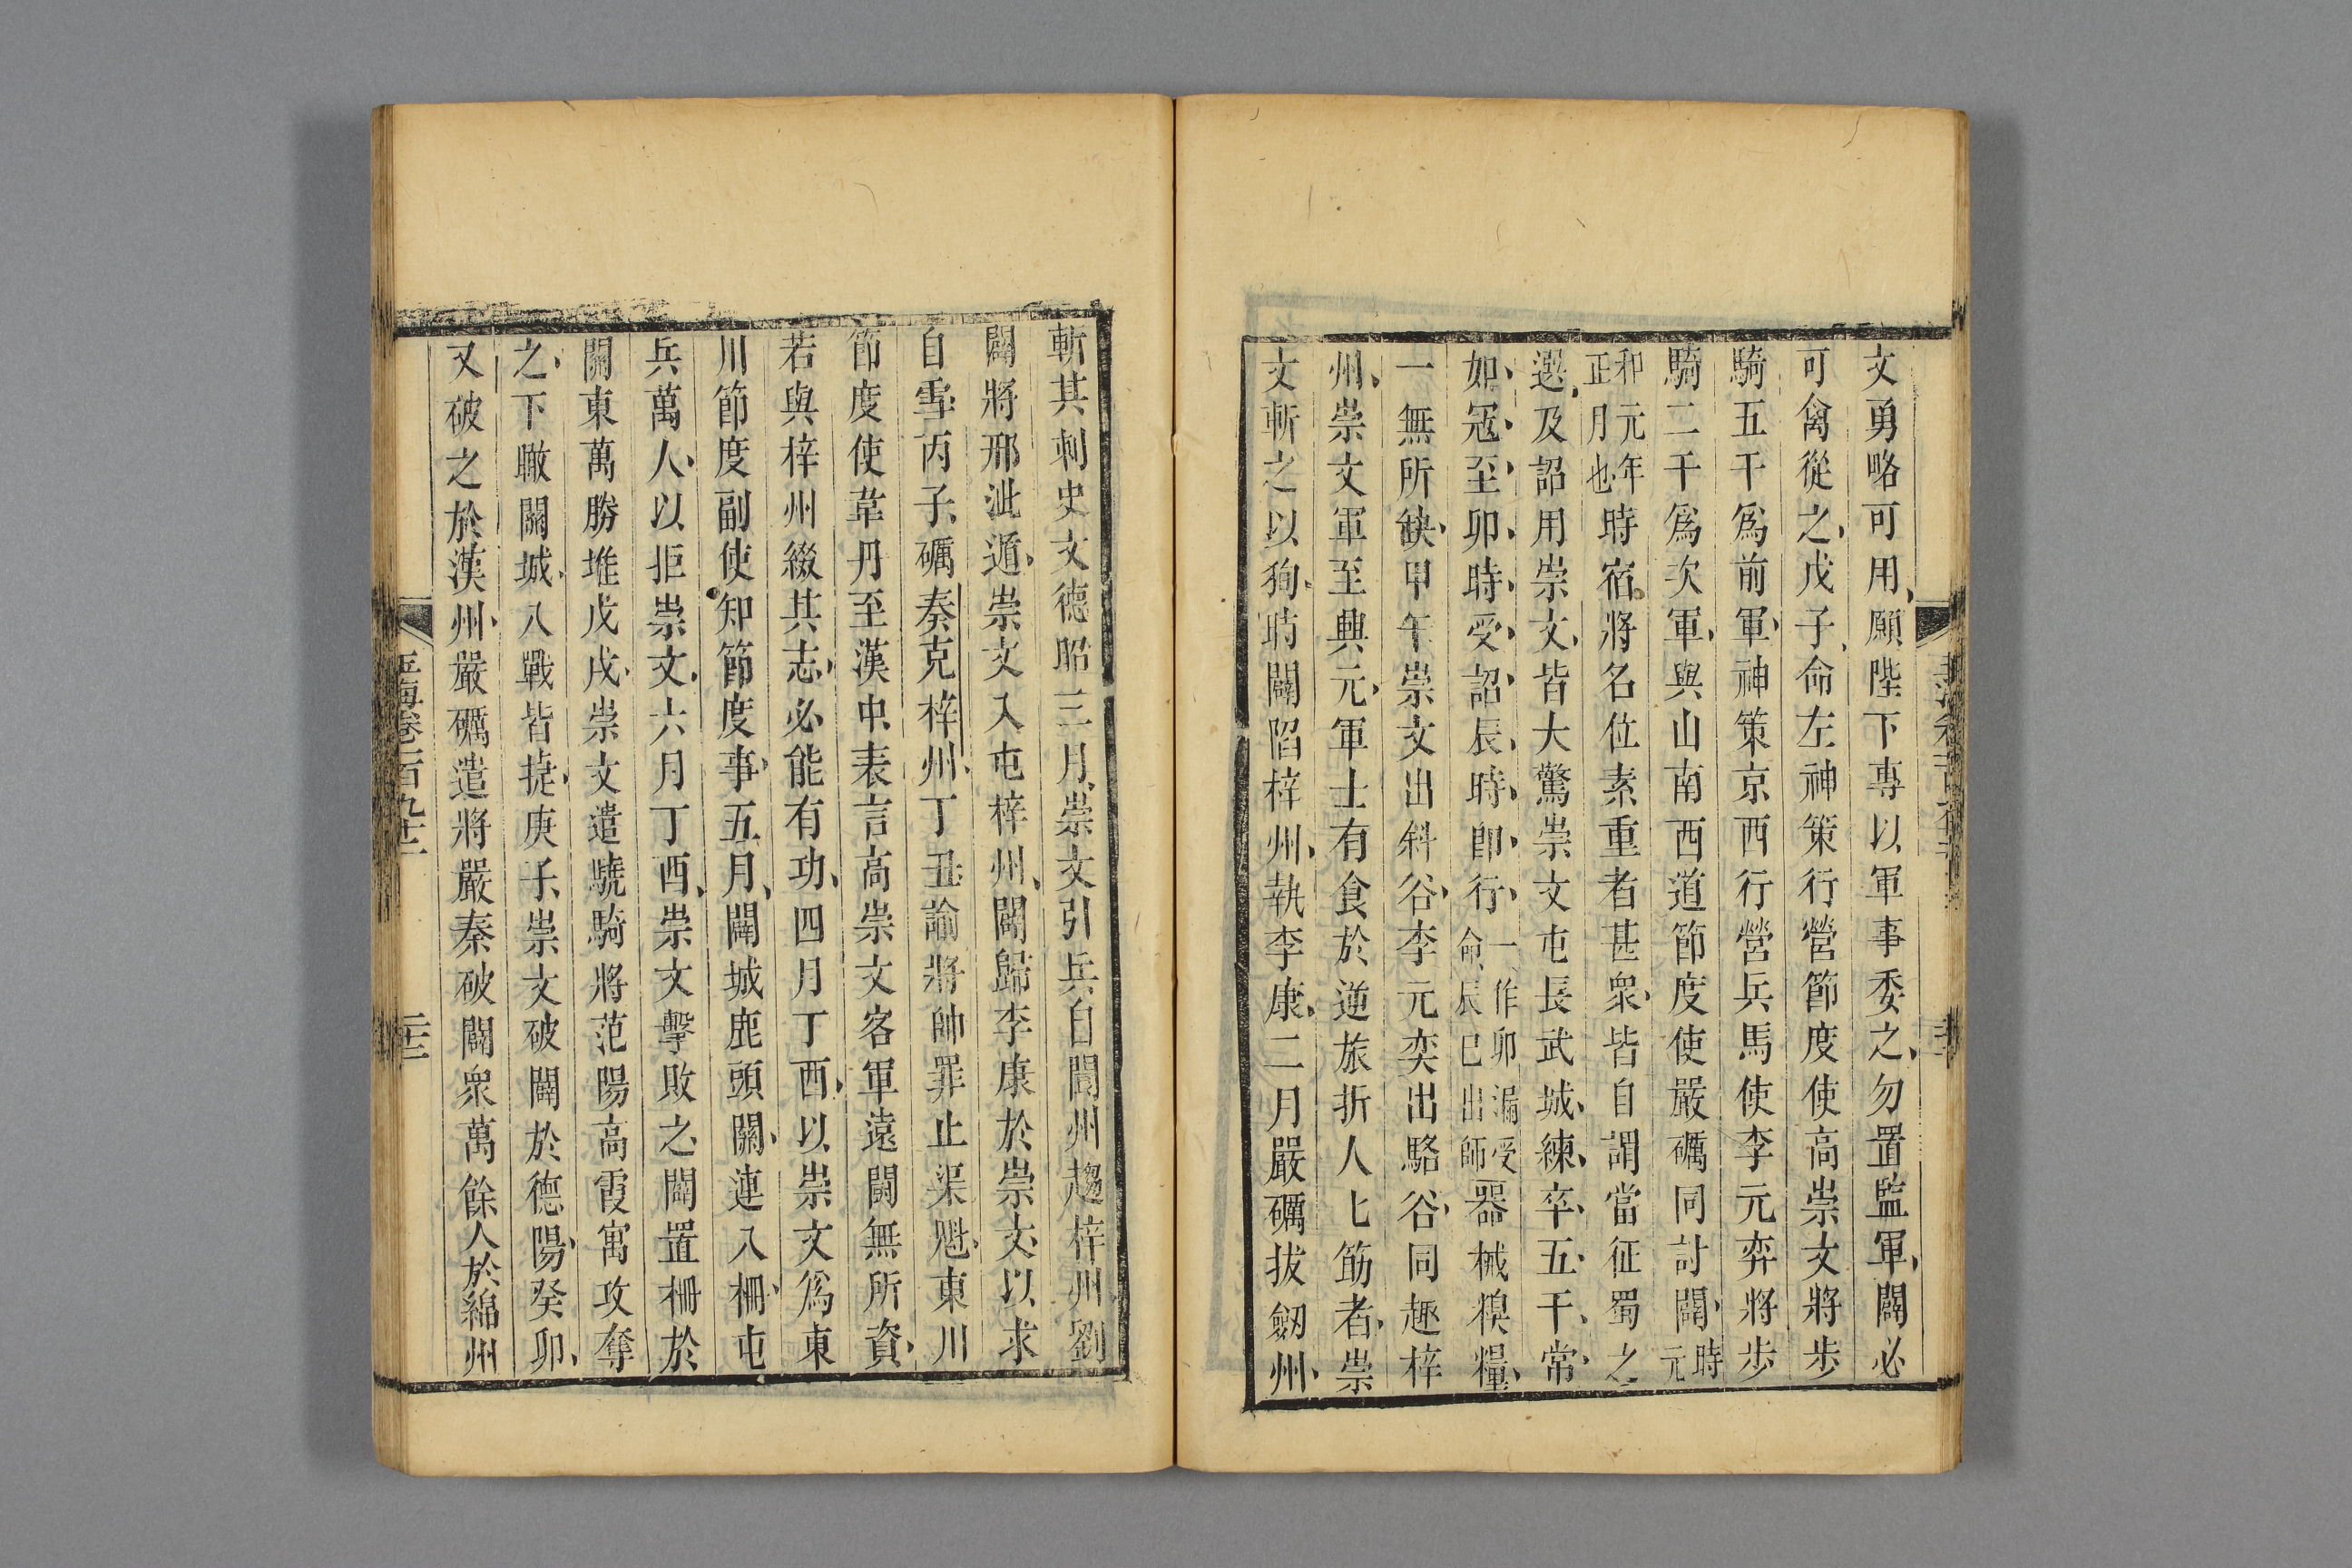 文勇略可用願陛下專以軍事委之勿置監軍闢必
可禽從之戊子命左神策行營節度使高崇文將步
騎五千爲前軍神策京西行營兵馬使李元弈將步
騎二千爲次軍與山南西道節度使嚴礪同討闢時元
和元年正月也時宿將名位素重者甚衆皆自謂當征蜀之
選及詔用崇文皆大驚崇文屯長武城練卒五千常
如冦至卯時受詔辰時即行一作卯漏受命辰巳出師器械糗糧
一無所缺甲午崇文出斜谷李元奕出駱谷同趣梓
州崇文軍至興元軍士有食於逆旅折人匕筯者崇
文斬之以狥時闢陷梓州執李康二月嚴礪拔劒州
斬其刺史文德昭三月崇文引兵自閬州趨梓州劉
闢將邢泚遁崇文入屯梓州闢歸李康於崇文以求
自雪丙子礪奏克梓州丁丑諭將帥罪止渠魁東川
節度使韋丹至漢中表言高崇文客軍遠鬪無所資
若與梓州綴其志必能有功四月丁酉以崇文爲東
川節度副使知節度事五月闢城鹿頭關連八柵屯
兵萬人以拒崇文六月丁酉崇文擊敗之闢置柵於
關東萬勝堆戊戌崇文遣驍騎將范陽高霞寓攻奪
之下瞰關城八戰皆捷庚子崇文破闢於德陽癸卯
又破之於漢州嚴礪遣將嚴秦破闢衆萬餘人於綿州